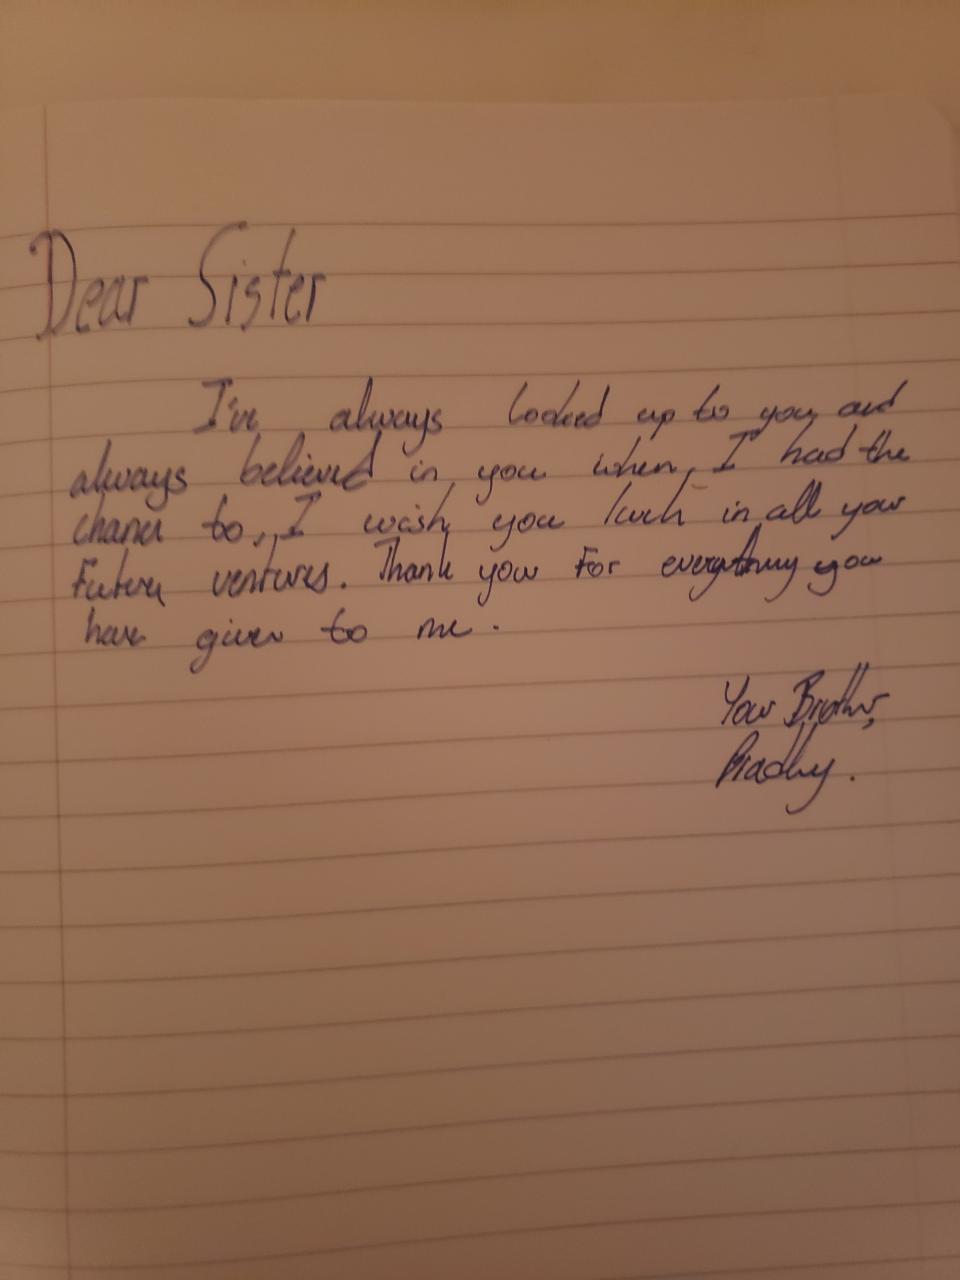 Dear Sister
I've always looked up to you, and
always believed in you when, I had the
chance to, I wish you luck in all your
Future ventures. Thank you For everything you
have given to me.
Your Brother,
Bradley.